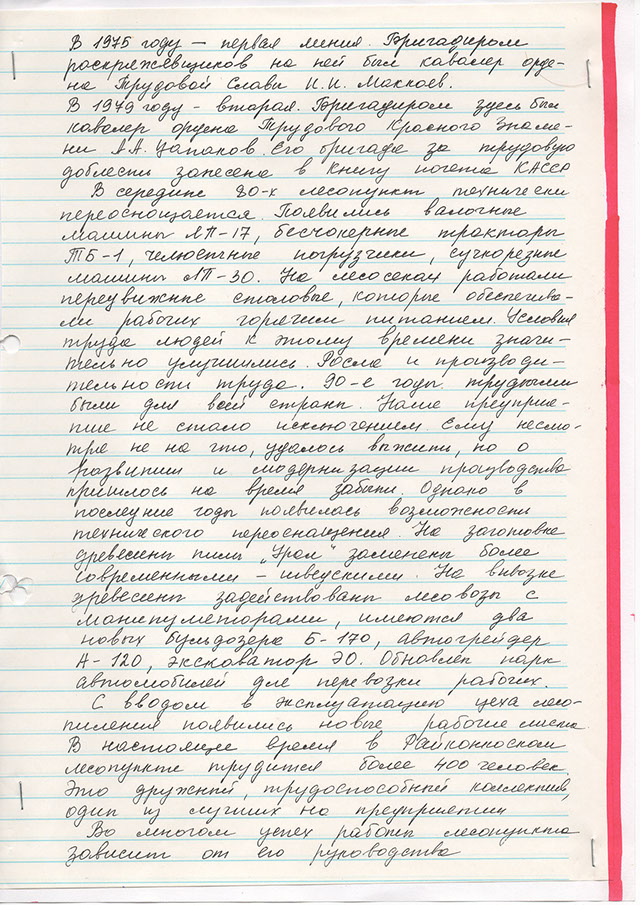 В 1975 году — первая линия. Бригадиром
раскряжёвщиков на ней был кавалер орде-
на Трудовой Славы И.И. Маккоев.
В 1979 году - вторая. Бригадиром здесь был
кавалер ордена Трудового Красного Знаме-
ни А.А. Цапаков. Его бригада за трудовую
доблесть занесена в книгу почета КАССР
В середине 80-х лесопункт технически
переоснощается. Появились валочные
машины ЛП-17, бесчокерные тракторы
ТБ-1, челюстные погрузчики, сучкорезные
машины ЛП-30. На лесосеках работали
передвижные столовые, которые обеспечива-
ли рабочих горячим питанием. Условия
труда людей к этому времени значи-
тельно улучшились. Росла и производи-
тельность труда. 90-е годы трудными
были для всей страны. Наше предприя-
тие не стало исключением. Ему несмо-
тря не на что, удалось выжить, но о
развитии и модернизации производства
пришлось на время забыть. Однако в
последние годы появилась возможность
технического переоснащения. На заготовке
древесины пилы „Урал" заменены более
современными – шведскими. На вывозке
древесины задействованы лесовозы с
манипуляторами, имеются два
новых бульдозера Б-170, автогрейдер
А-120, экскаватор ЭО. Обновлен парк
автомобилей для перевозки рабочих.
С вводом в эксплуатацию цеха лесо-
пиления появились новые рабочие места.
В настоящее время в Райконкоском
лесопункте трудится более 400 человек.
Это дружный, трудоспособный коллектив,
один из лучших на предприятии
Во многом успех работы лесопункта
зависит от его руководства